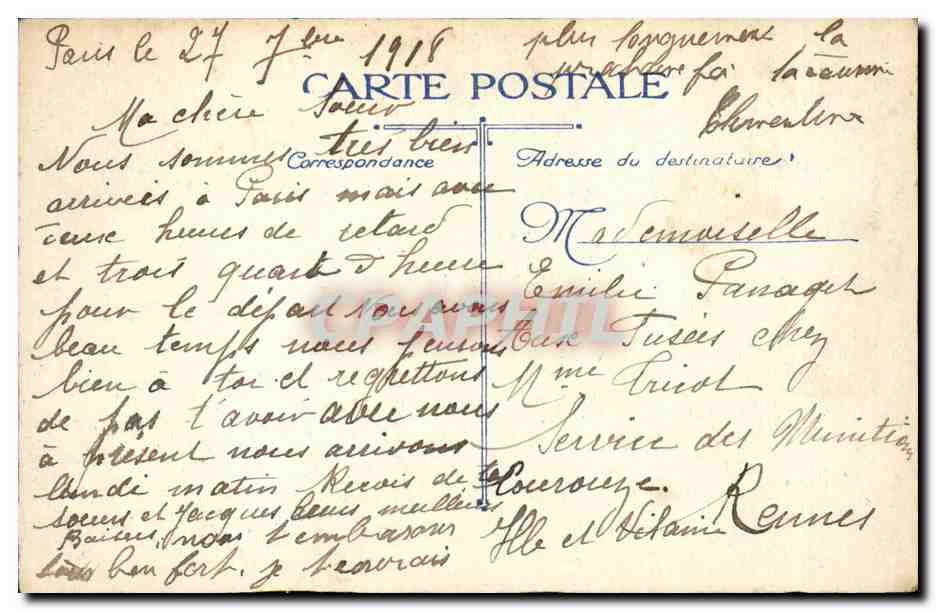 Paris le 27 7bre 1918
CARTE POSTALE
Correspondance
Ma chère Soeur
Nous sommes très bien
arrivées à Paris mais avec
deux heures de retard
et trois quart d heure
pour le départ nous avons
beau temps nous pensons
bien à toi et regrettons
de pas t'avoir avec nous
à présent nous arrivons
lundi matin Recois de tes
soeurs et Jacques leurs meilleurs
Baisers, nous t'embrassons
tous ben fort. je t'ecrirais
plus longuement la
prochaine foi ta soeur
Clementine
Adresse du destinataire
Mademoiselle
Emilie Panaget
Aux Fusées chez
Mme Tricot
Service des Munition
Courouze.
Rennes
Ille et Vilaine
CPAPHIL